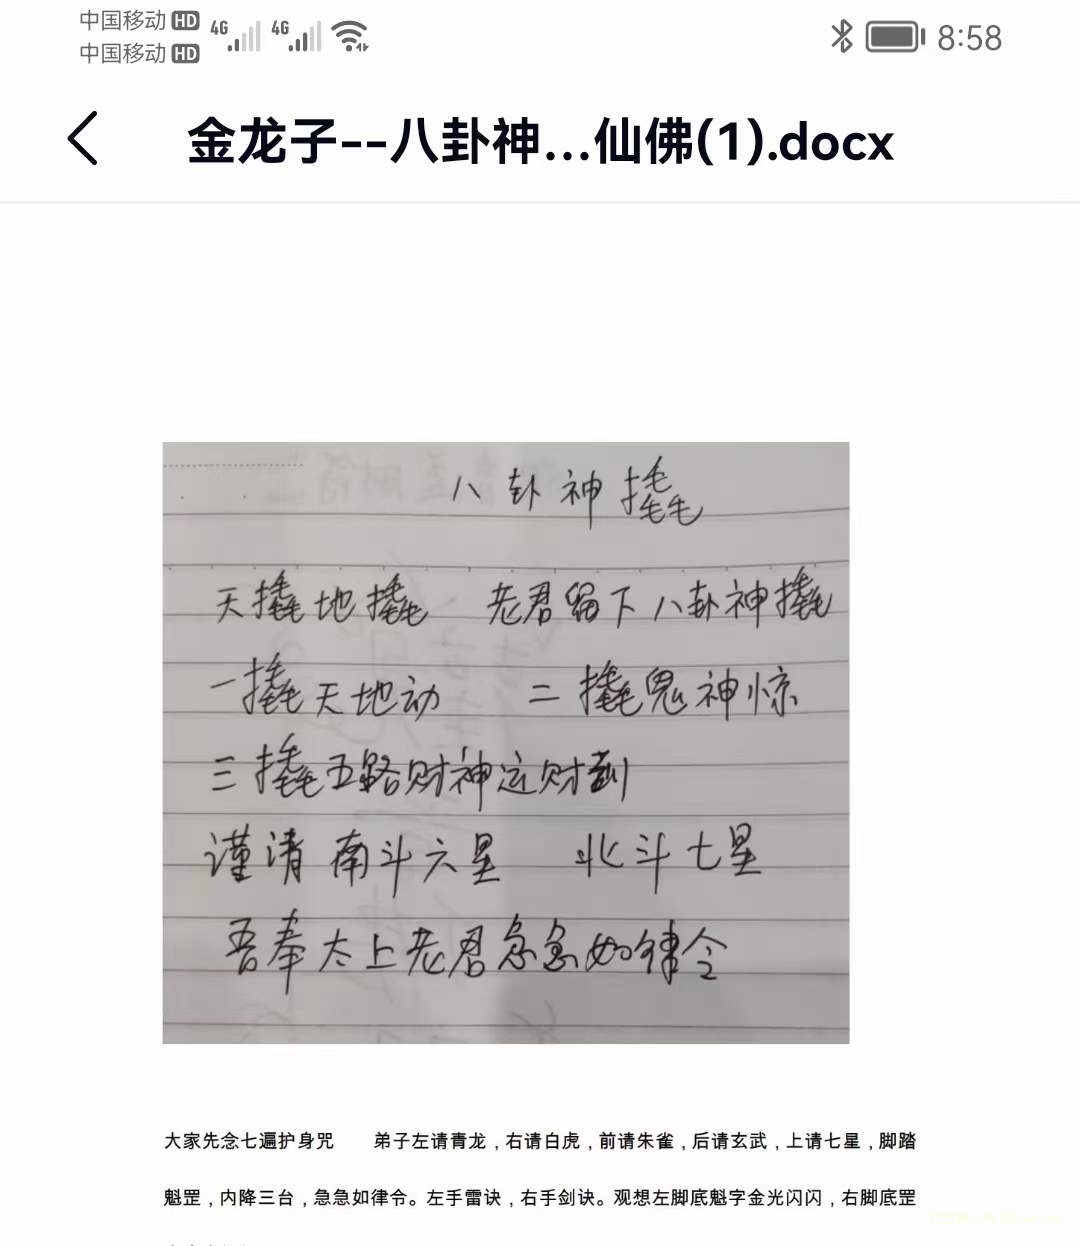 中国移动 HD 4G 4G 8:58
中国移动 HD
金龙子--八卦神...仙佛(1).docx
八卦神撬
天撬地撬 老君留下八卦神撬
一撬天地动 二撬鬼神惊
三撬五路财神运财到
谨请南斗六星 北斗七星
吾奉太上老君急急如律令
大家先念七遍护身咒 弟子左请青龙,右请白虎,前请朱雀,后请玄武,上请七星,脚踏
魁罡,内降三台,急急如律令。左手雷诀,右手剑诀。观想左脚底魁字金光闪闪,右脚底罡